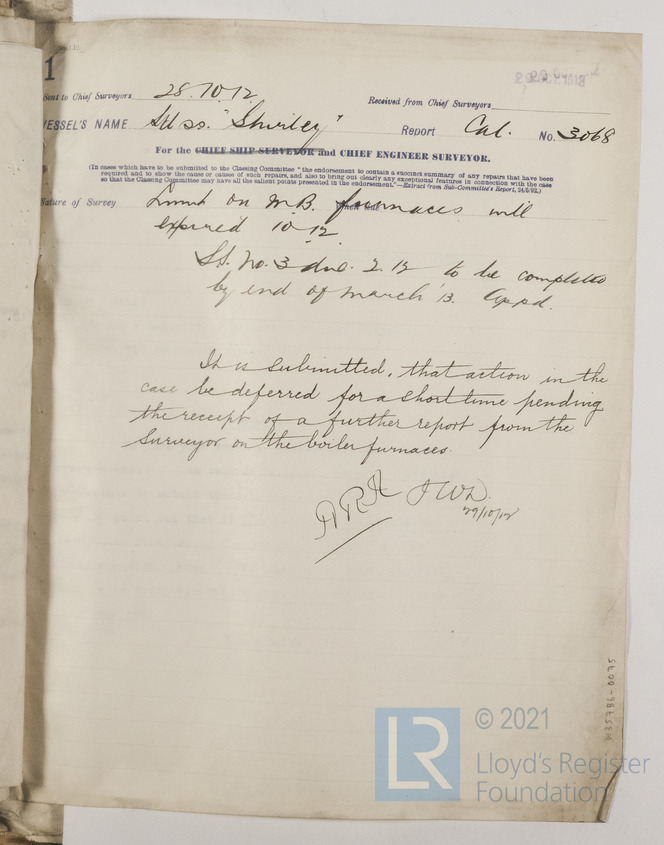 1
Sent to Chief Surveyors 28.10.12.
Received from Chief Surveyors
VESSEL'S NAME "Shirley" Report Cal. No. 3068
For the CHIEF SHIP SURVEYOR and CHIEF ENGINEER SURVEYOR.
(In cases which have to be submitted to the Classing Committee "the endorsement to contain a succinct summary of any repairs that have been
required and to show the cause or causes of such repairs, and also to bring out clearly any exceptional features in connection with the case
so that the Classing Committee may have all the salient points presented in the endorsement."—Extract from Sub-Committee's Report, 24/5/92.)
Nature of Survey Limit on M.B. furnaces will
expired 10.12.
S.S. No. 3 due 2.12 to be completed
by end of March '13. Appd.
It is submitted, that action in the
case be deferred for a short time pending
the receipt of a further report from the
Surveyor on the boiler furnaces.
29/10/12
H35786-0075
LR
© 2021
Lloyd's Register
Foundation